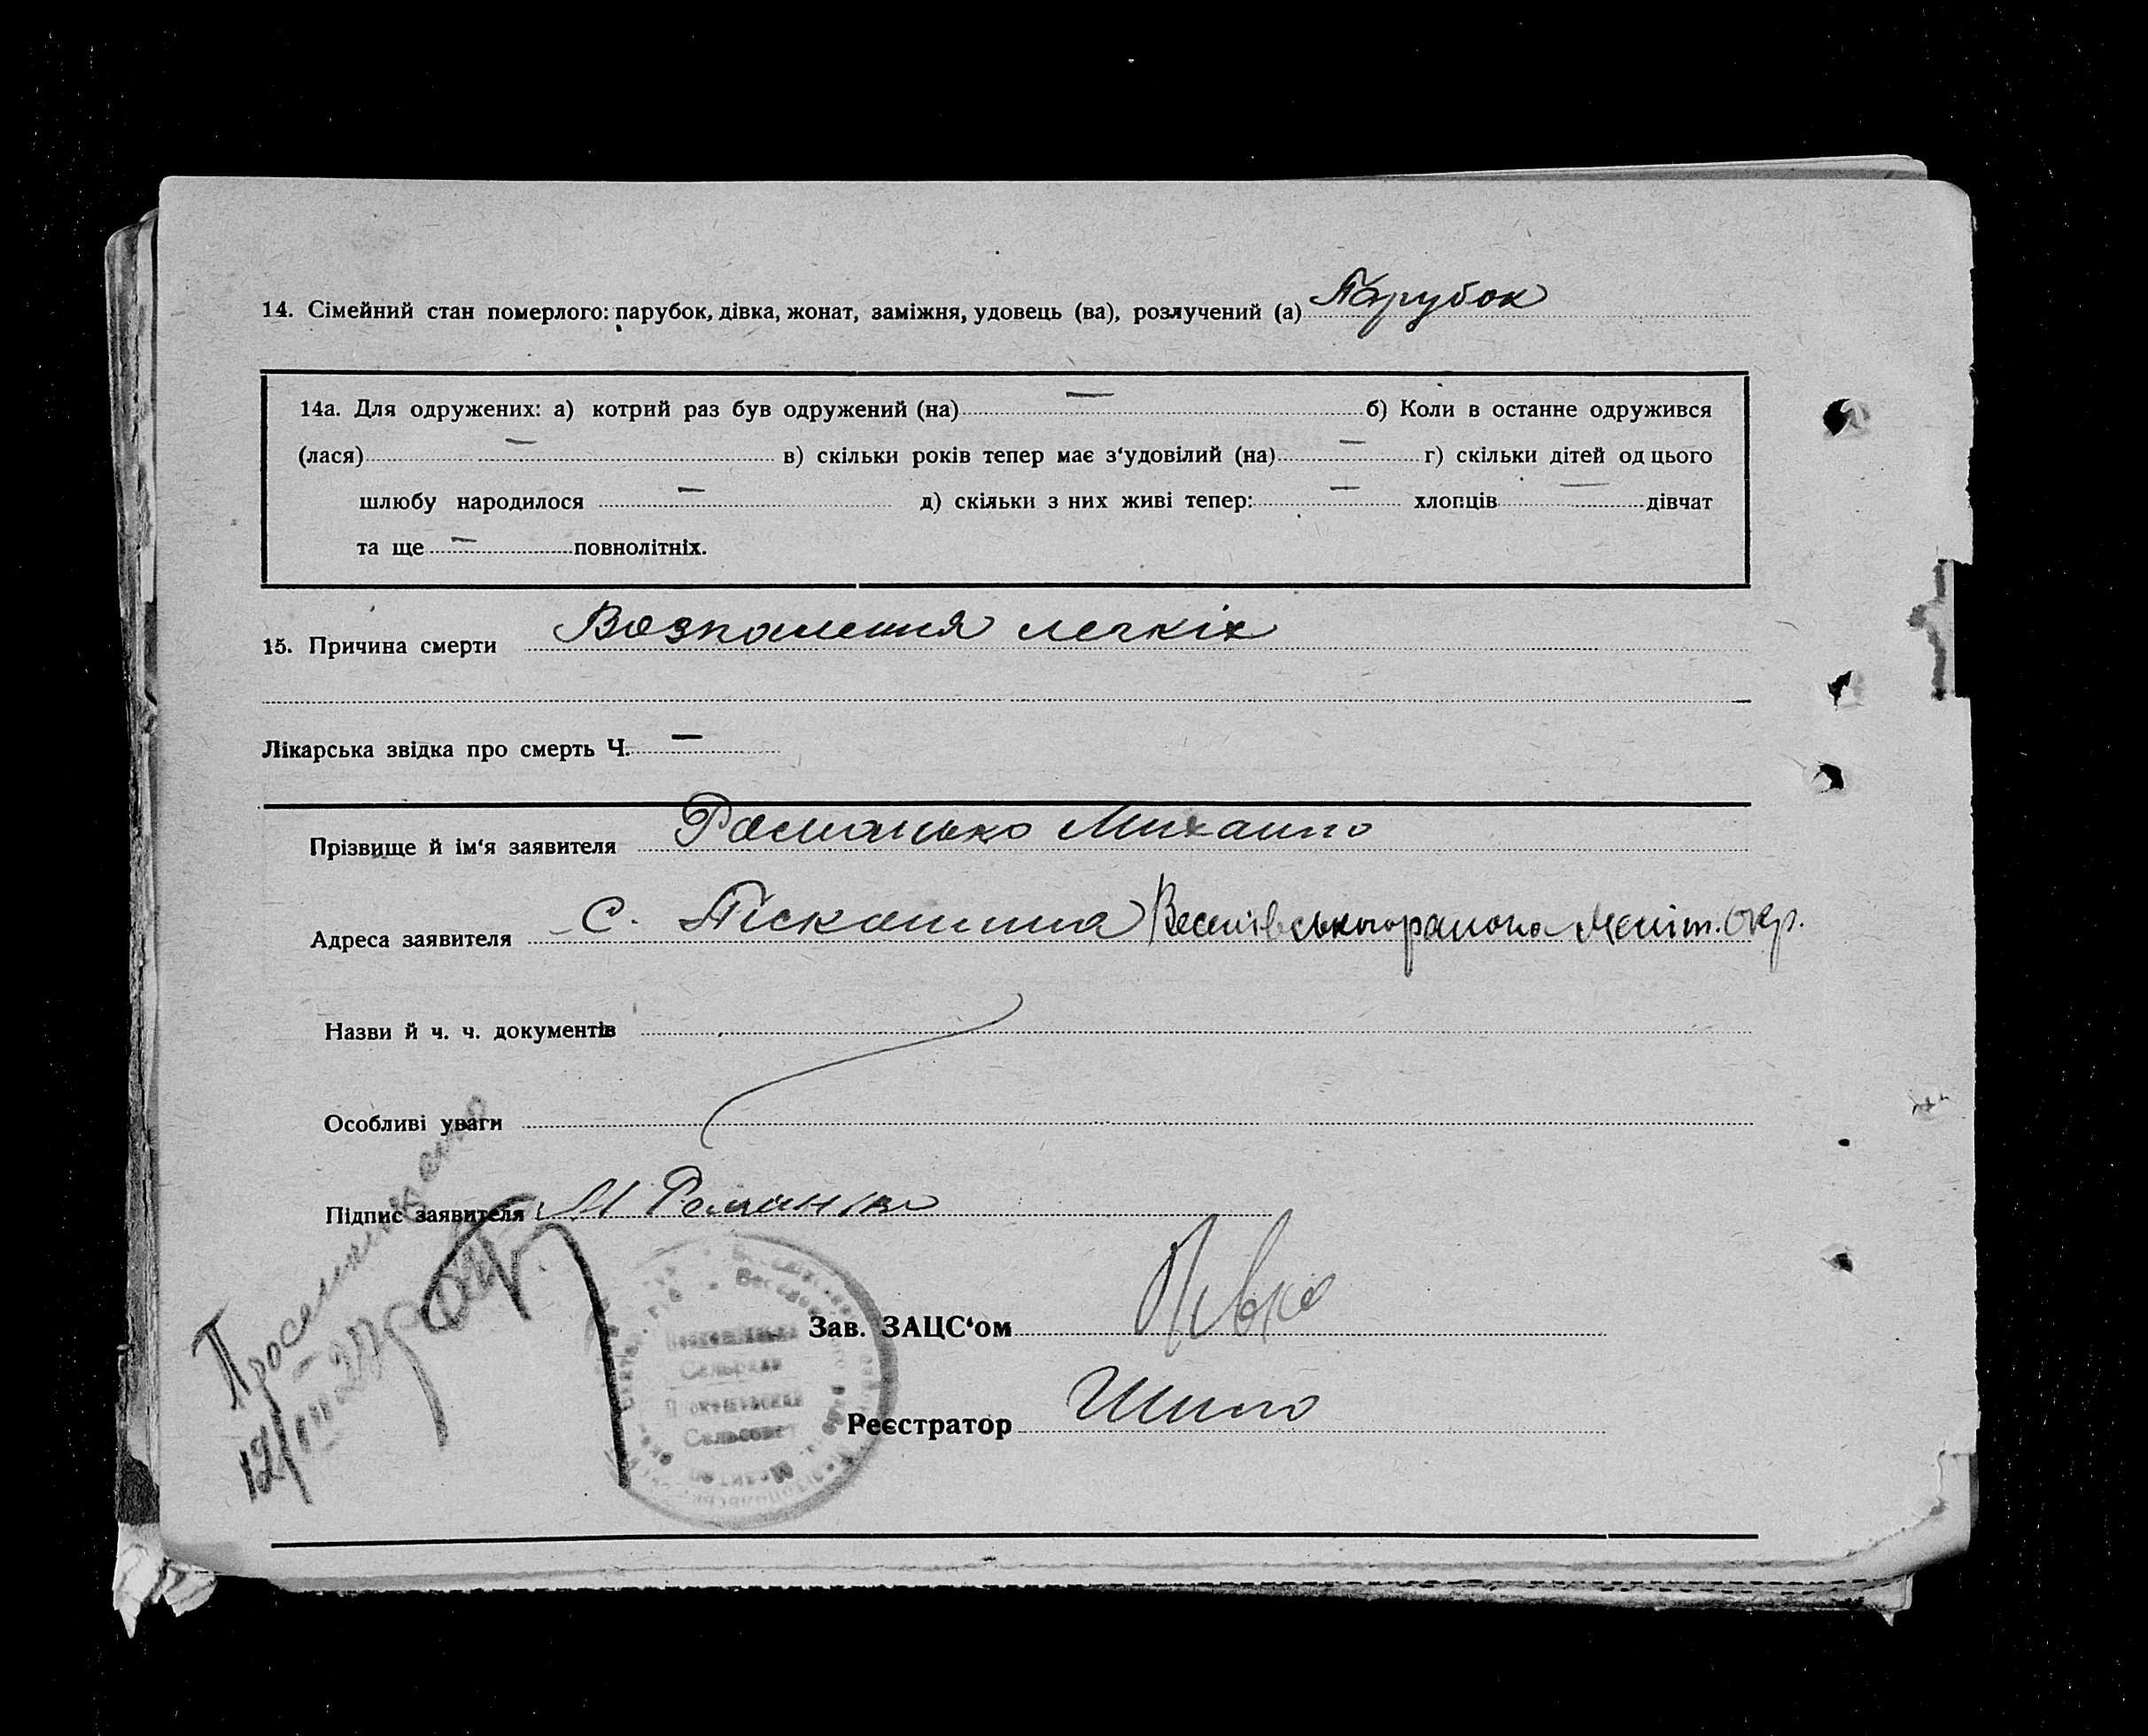 14. Сімейний стан померлого: парубок, дівка, жонат, заміжня, удовець (ва), розлучений (а) Парубок
14а. Для одружених: а) котрий раз був одружений (на) — б) Коли в останнє одружився
(лася) — в) скільки років тепер має з‘удовілий (на) — г) скільки дітей од цього
шлюбу народилося — д) скільки з них живі тепер: — хлопців — дівчат
та ще — повнолітніх.
15. Причина смерти Возпаления легкіх
Лікарська звідка про смерть Ч. —
Прізвище й ім‘я заявителя Романько Михаило
Адреса заявителя с. Піскошина Веселівського района Меліт. Окр.
Назви й ч. ч. документів
Особливі уваги
Підпис заявителя М Романько
Зав. ЗАЦС‘ом
Реєстратор Шило
Сельрада
Сельсовет